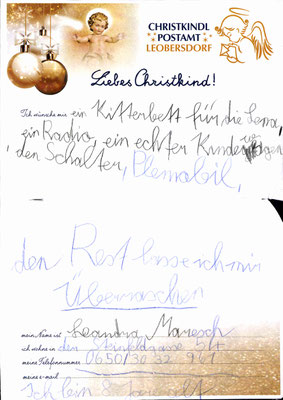 CHRISTKINDL
POSTAMT
LEOBERSDORF
Liebes Christkind!
Ich wünsche mir ein Kitterbett für die Lena,
ein Radio, ein echter Kinderwagen
, den Schalter, Plemobil,
den Rest lasse ich mir
Überraschen
mein Name ist Leandra Maresch
ich wohne in
meine Telefonnummer 0650/30 32 961
meine e-mail
Ich bin 8